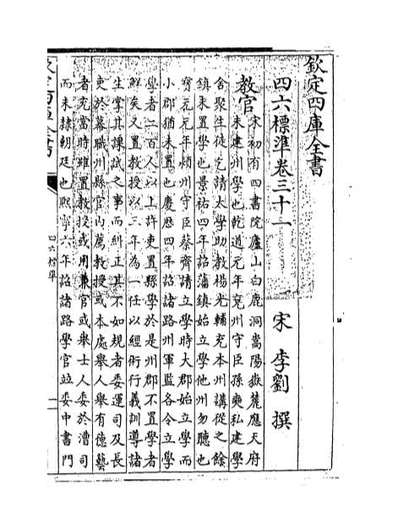 欽定四庫全書
四六標準卷三十一
宋 李劉 撰
教官
宋初有四書院廬山白鹿洞嵩陽嶽麓應天府
未建州學也乾道元年兗州守臣孫奭私建學
舍聚生徒乞請太學助教楊光輔充本州講從之餘
鎮未置學也景祐四年詔藩鎮始立學他州勿聽也
寶元元年潁州守臣蔡齊請立學時大郡始立學而
小郡猶未置也慶厯四年詔諸路州軍監各令立學
學者二百人以上許更置縣學於是州郡不置學者
鮮矣又置教授以三年為一任以經術行義訓導諸
生掌其課試之事而糾正其不如規者委運司及長
吏於幕職州縣官内薦教授或本處舉人舉有德藝
者充當時雖置教授或用兼官或舉士人委於漕司
而未隸朝廷也熙寧六年詔諸路學官並委中書門
四六標準